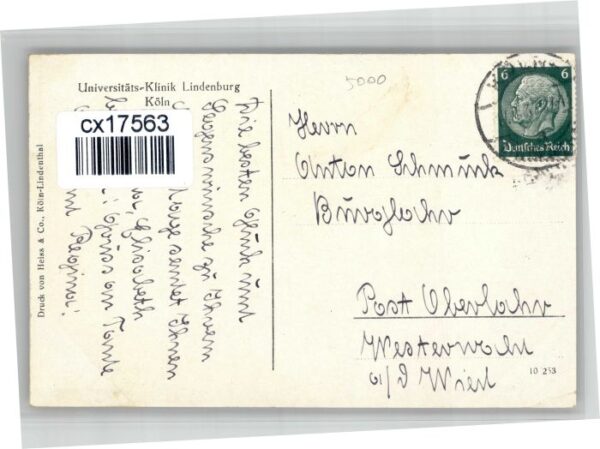 Universitäts-Klinik Lindenburg
Köln
cx17563
Druck von Heiss & Co., Köln-Lindenthal
5000
6 6
Deutsches Reich
Die besten Glück und
Segenswünsche zu Ihrem
sendet Ihnen
Elisabeth
Gruss an Tante
Herrn
Anton Schmuck
Burglahr
Post Oberlahr
Westerwald
a/d Wied
10 253